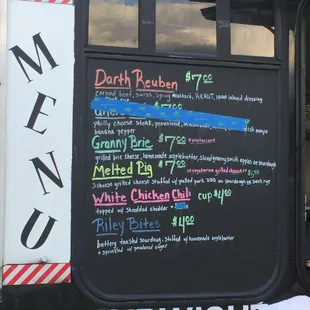 MENU
Darth Reuben $7.00
corned beef, swiss, spicy mustard, KRAUT, 1000 island dressing
$7.00
philly cheese steak, provolone,
banana pepper
Granny Brie $7.00 *vegetarian*
grilled brie cheese, homemade applebutter, sliced granny smith apples on sourdough
Melted Pig $7.00 *vegetarian grilled cheese* $5.00
3 cheese grilled cheese stuffed w/ pulled pork BBQ on sourdough or dark rye
White Chicken Chili cup $4.00
topped w/ shredded cheddar
Riley Bites $4.00
buttery toasted sourdough, stuffed w/ homemade applebutter
+ sprinkled w/ powdered sugar